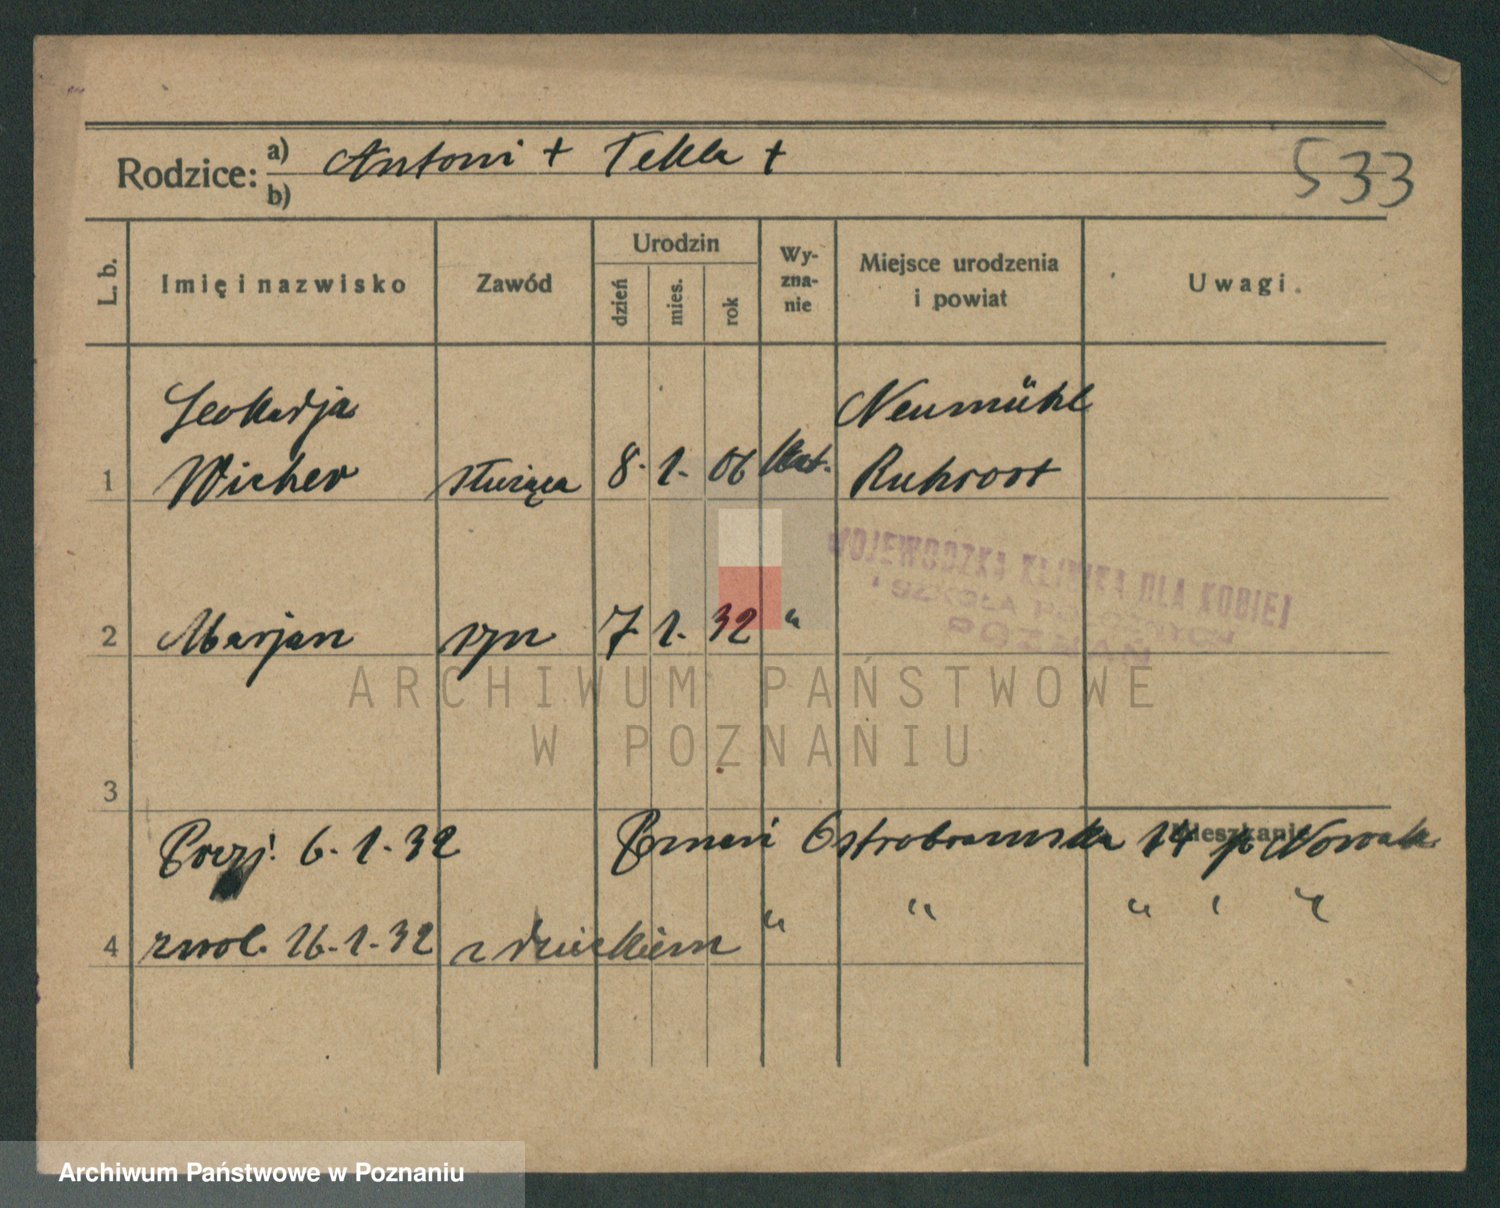 Rodzice: a) Antoni + Tekla +
b)
533
L. b.
Imię i nazwisko
Zawód
Urodzin
dzień
mies.
rok
Wy-
zna-
nie
Miejsce urodzenia
i powiat
Uwagi.
Leokadja
Neumühl
1 Wicher służąca 8. 1. 06 kat. Ruhrort
WOJEWÓDZKA KLINIKA DLA KOBIET
I SZKOŁA POŁOŻNYCH
POZNAŃ
2 Marjan syn 7 1. 32 "
ARCHIWUM PAŃSTWOWE
W POZNANIU
3
Mieszkanie
Przyj. 6. 1. 32 Ostrobramska 14 p. Nowak
4 zwol. 16. 1. 32 z dzieckiem " " " " "
Archiwum Państwowe w Poznaniu